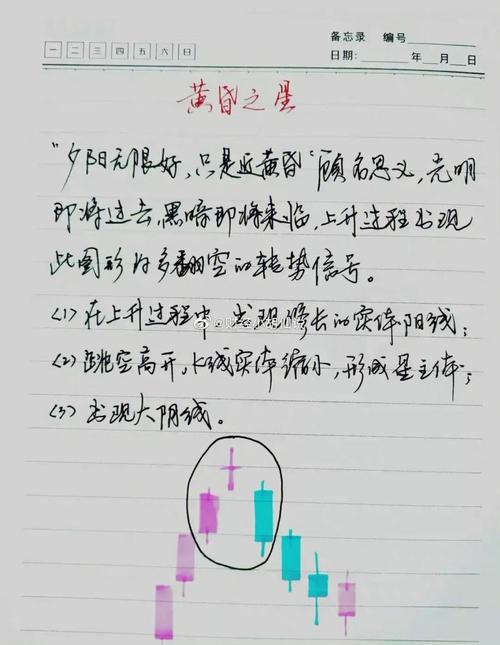 备忘录 编号
一 二 三 四 五 六 日
日期： 年 月 日
黄昏之星
"夕阳无限好，只是近黄昏"顾名思义，光明
即将过去，黑暗即将来临，上升过程出现
此图形为多翻空的转势信号。
(1)在上升过程中 出现修长的实体阳线；
(2)跳空高开，K线实体缩小，形成星主体；
(3)出现大阴线。